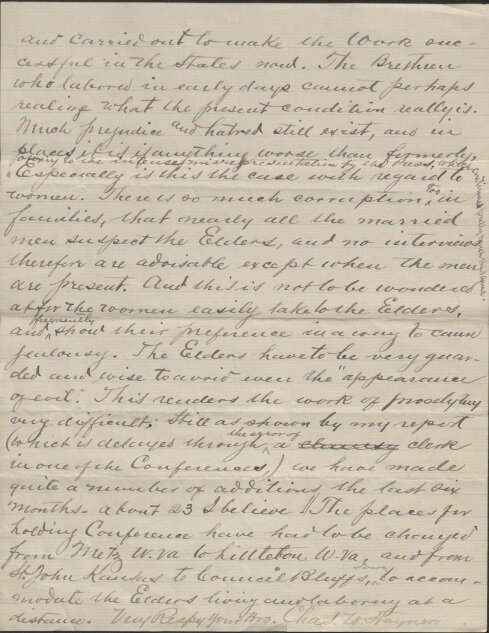 and carried out to make the Work suc-
cessful in the States now. The Brethren
who labored in early days cannot perhaps
realize what the present condition really is.
Much prejudice and hatred still exist, and in
places it is if anything worse than formerly,
owing to the intense misrepresentation by the Press,
Especially is this the case with regard to
women. There is so much corruption too in
families, that nearly all the married
men suspect the Elders, and no interviews
therefore are advisable except when the men
are present. And this is not to be wondered
at for the women easily take to the Elders,
and frequently show their preference in a way to cause
jealousy. The Elders have to be very guar-
ded and wise to avoid even the "appearance
of evil. This renders the work of proselyting
very difficult. Still as shown by my report
(which is delayed through the error of a clumsy clerk
in one of the Conferences,) we have made
quite a number of additions the last six
months - about 23 I believe. The places for
holding Conference have had to be changed
from Metz W. Va to Littleton W. Va. and from
St. John Kansas to Council Bluffs, Iowa, to accom-
modate the Elders living and laboring at a
distance. Very Respy Your Bro. Chas. W. Stayner